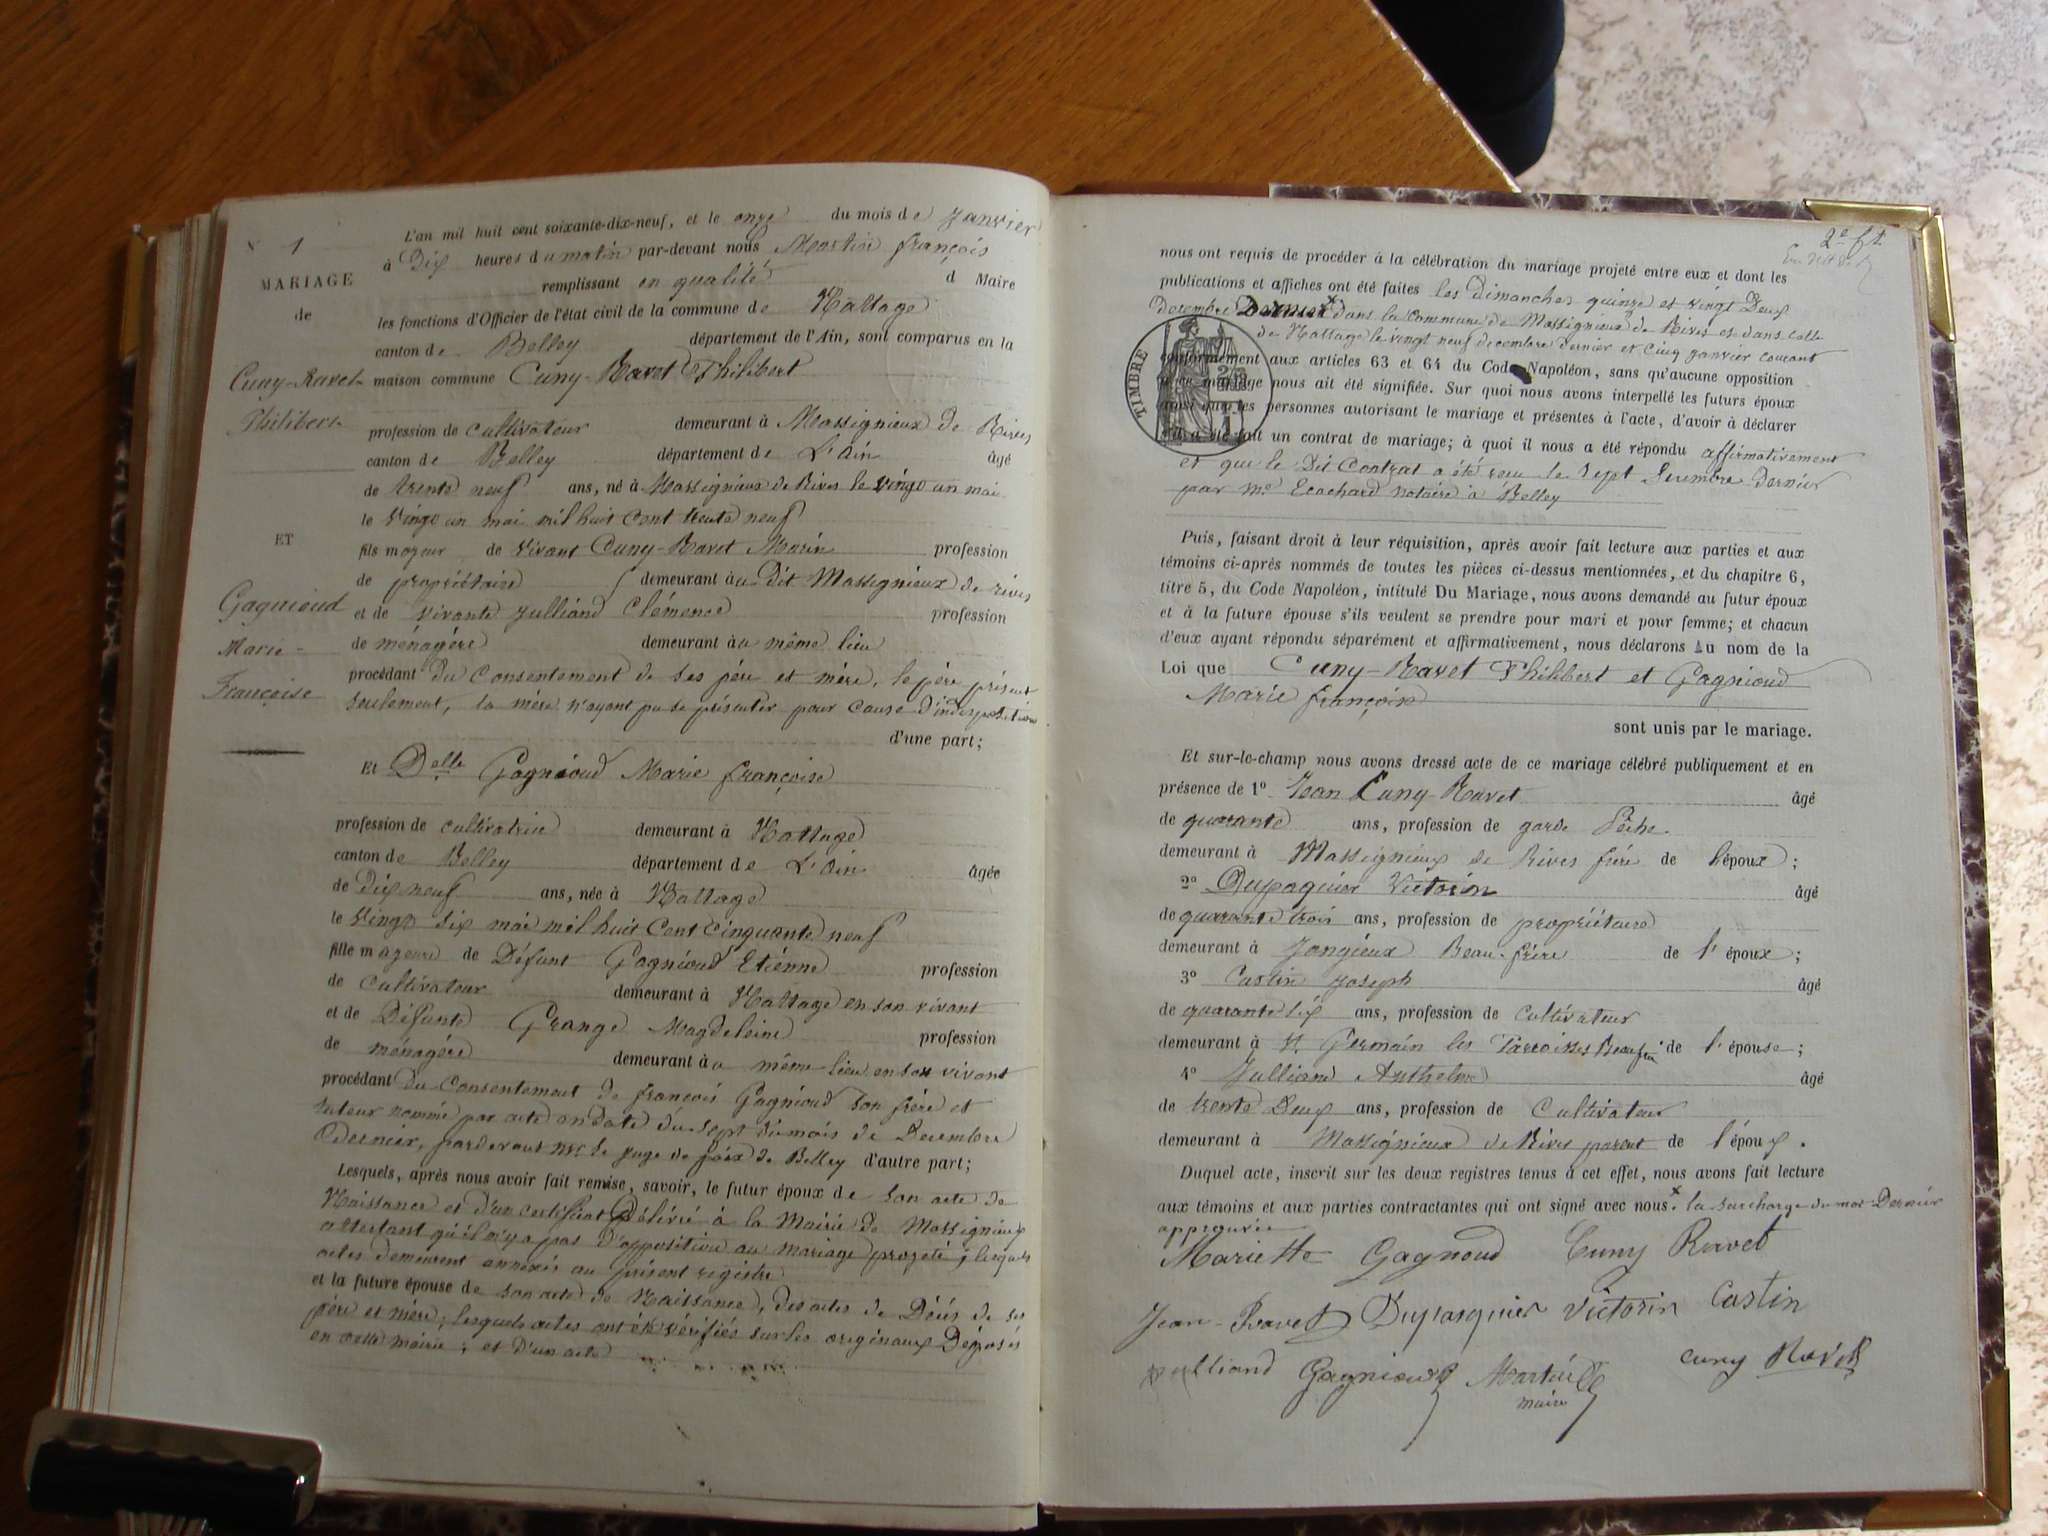 N° 1
MARIAGE
de
Cuny-Ravet
Philibert
ET
Gagnioud
Marie-
Françoise
L'an mil huit cent soixante-dix-neuf, et le onze du mois de Janvier
à Dix heures du matin par-devant nous Martin françois
remplissant en qualité d Maire
les fonctions d'Officier de l'état civil de la commune de Nattage
canton de Belley département de l'Ain, sont comparus en la
maison commune Cuny-Ravet Philibert
profession de cultivateur demeurant à Massignieux de Rives
canton de Belley département de L'Ain âgé
de trente neuf ans, né à Massignieux de Rives le vingt un mai
le vingt un mai mil huit cent trente neuf
fils majeur de vivant Cuny-Ravet Marin profession
de propriétaire demeurant au Dit Massignieux de rives
et de vivante Julliand Clémence profession
de ménagère demeurant au même lieu
procédant du Consentement de ses père et mère, le père présent
seulement, la mère n'ayant pu se présenter pour cause d'indisposition
d'une part;
Et Delle Gagnioud Marie françoise
profession de cultivatrice demeurant à Nattage
canton de Belley département de L'Ain âgée
de Dix neuf ans, née à Nattage
le vingt six mai mil huit Cent Cinquante neuf
fille mageure de Défunt Gagnioud Etienne profession
de cultivateur demeurant à Nattage en son vivant
et de Défunte Grange Magdeleine profession
de ménagère demeurant au même lieu en son vivant
procédant du Consentement de françois Gagnioud son frère et
tuteur nommé par acte en date du sept du mois de Decembre
Dernier, pardevant Mr le juge de paix de Belley d'autre part;
Lesquels, après nous avoir fait remise, savoir, le futur époux de son acte de
Naissance et d'un certificat Délivré à la Mairie de Massignieux
attestant qu'il n'y a pas d'opposition au mariage projeté, lesquels
actes demeurent annexés au présent registre
et la future épouse de son acte de Naissance, des actes de Décès de ses
père et mère; lesquels actes ont été vérifiés sur les originaux Déposés
en cette mairie; et d'un acte
2e ft.
nous ont requis de procéder à la célébration du mariage projeté entre eux et dont les
publications et affiches ont été faites les dimanches quinze et vingt Deux
Decembre Dernier dans la commune de Massignieux de Rives et dans celle
de Nattage le vingt neuf decembre dernier et Cinq janvier courant
conformément aux articles 63 et 64 du Code Napoléon, sans qu'aucune opposition
à ce mariage nous ait été signifiée. Sur quoi nous avons interpellé les futurs époux
ainsi que les personnes autorisant le mariage et présentes à l'acte, d'avoir à déclarer
s'il a été fait un contrat de mariage; à quoi il nous a été répondu affirmativement
TIMBRE
et que le Dit Contrat a été reçu le sept Decembre Dernier
par Me Ecochard notaire à Belley
Puis, faisant droit à leur réquisition, après avoir fait lecture aux parties et aux
témoins ci-après nommés de toutes les pièces ci-dessus mentionnées, et du chapitre 6,
titre 5, du Code Napoléon, intitulé Du Mariage, nous avons demandé au futur époux
et à la future épouse s'ils veulent se prendre pour mari et pour femme; et chacun
d'eux ayant répondu séparément et affirmativement, nous déclarons au nom de la
Loi que Cuny-Ravet Philibert et Gagnioud
Marie françoise
sont unis par le mariage.
Et sur-le-champ nous avons dressé acte de ce mariage célébré publiquement et en
présence de 1° Jean Cuny-Ravet âgé
de quarante ans, profession de garde Pêche
demeurant à Massignieux de Rives frère de l'époux;
2° Dupaquier Victorin âgé
de quarante trois ans, profession de propriétaire
demeurant à Jongieux Beau-frère de l'époux;
3° Castin Joseph âgé
de quarante six ans, profession de Cultivateur
demeurant à St Germain les Paroisses Beaufrère de l'épouse;
4° Julliand Anthelme âgé
de trente Deux ans, profession de Cultivateur
demeurant à Massignieux de Rives parent de l'époux.
Duquel acte, inscrit sur les deux registres tenus à cet effet, nous avons fait lecture
aux témoins et aux parties contractantes qui ont signé avec nous. la surcharge du mot Dernier
approuvée
Mariette Gagnoud Cuny Ravet
Jean-Ravet Dupasquier Victorin Castin
Julliand Gagnioud Martin cuny Ravet
maire